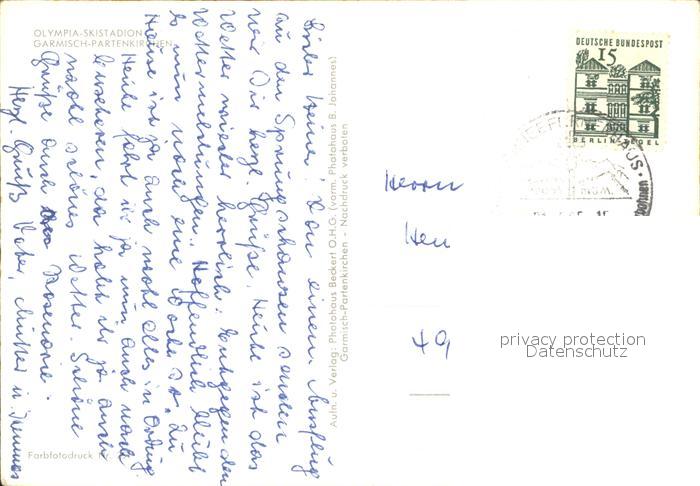 OLYMPIA-SKISTADION
GARMISCH-PARTENKIRCHEN
Lieber Heiner! Von einem Ausflug
zu den Sprungschanzen senden
wir Dir herzl. Grüße. Heute ist das
Wetter wieder herrlich. Entgegen den
Wettermeldungen. Hoffentlich bleibt
es nun noch eine Woche so. Zu
Hause ist ja auch wohl alles in Ordng.
Heute fahrt ihr ja nun auch nach
, da habt ihr ja auch
noch schönes Wetter. Schöne
Grüße auch Rosemarie.
Herzl. Gruß Vater, Mutter u.
Farbfotodruck
Aufn. u. Verlag: Photohaus Beckert O.H.G. (vorm. Photohaus B. Johannes)
Garmisch-Partenkirchen - Nachdruck verboten
DEUTSCHE BUNDESPOST
15
BERLIN-TEGEL
Herrn
49
privacy protection
Datenschutz